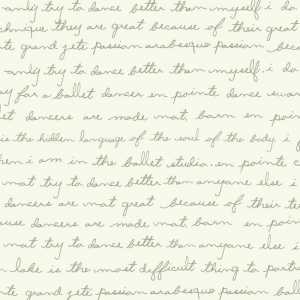 only try to dance better than myself. i do
technique they are great because of their great
te grand jete passion arabesque passion beca
only try to dance better than myself. i do
y for a ballet dancer en pointe dance swan
let dancers are made not, born en poin
is the hidden language of the soul of the body i f
hen i am in the ballet studio en pointe c
not try to dance better than anyone else i
dancers are not great because of their te
ause dancers are made not, born en poin
not try to dance better than anyone else i
n lake is the most difficult thing to perfo
te grand jete passion arabesque passion ball